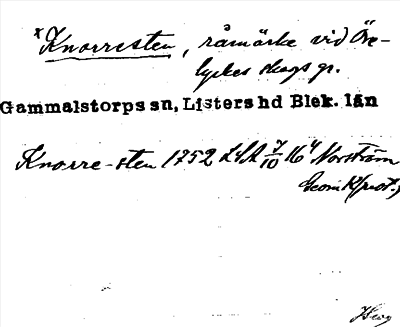 x Knorresten, råmärke vid Öre-
lyckes skogs gr.
Gammalstorps sn, Listers hd Blek. län
Knorre-sten 1752 LSA 7/10 16 4 Norström
Geom. K(prot.)